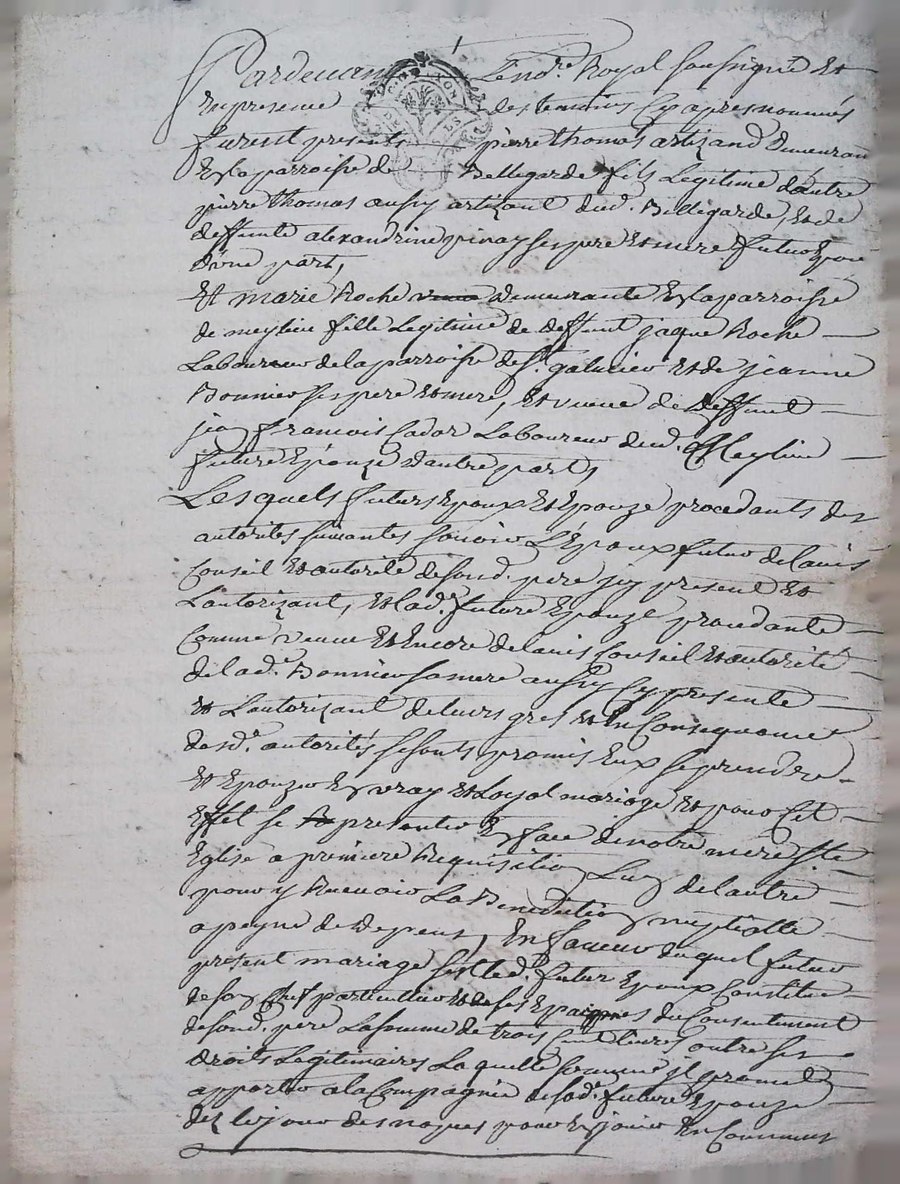 Pardevant Le nore. Royal soussigné Et
En presence des temoins Cy apres nommés
furent presents pierre thomas artizand Demeurant
En la parroisse de Bellegarde fils Legitime dautre
pierre thomas aussy artizant dud. Bellegarde, Et de
deffunte alexandrine pinay ses pere Et mere futur Epoux
D'une part,
Et marie Roche Demeurante En la parroisse
de meylieu fille Legitime de deffunt jaque Roche
Laboureur de la parroisse de St. galmier Et de jeanne
Bonnier ses pere Et mere, Et veuve de deffunt
jean francois Cador Laboureur dud. Meylieu
future Epouze d'autre part,
Les quels futurs Epoux Et Epouze procedants des
autorités suivantes scavoir L'Epoux futur de l'avis
Conseil Et autorité de sond. pere jcy present Et
L'autorizant, Et lade. future Epouze procedante
Comme veuve Et Encore de lavis Conseil Et autorité
de la de. Bonnier sa mere aussy Cy presente
Et L'autorizant de leurs grés Et En Consequance
desde. autorités se sonts promis Eux se prendre
Et Epouzer En vray Et Loyal mariage Et pour Cet
Effet se presenter En face de notre mere Ste
Eglise a premiere Requisition Lun de lautre
pour y Recevoir La Benediction nuptialle
a peyne de depens, En faveur du quel futur
present mariage led. futur Epoux Constitue
de son Chef particulier Et de ses Epargnes du Consentement
de sond. pere La somme de trois Cent livres outre ses
droits Legitimaires La quelle somme jl promet
apporter a la Compagnie de sade. future Epouze
dez le jour des nopces pour En jouir En Commun